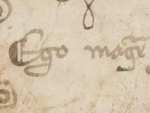 Ego magr